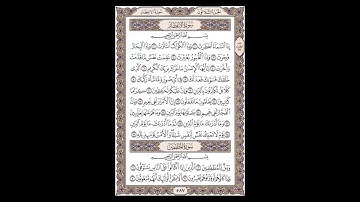 سورة الانفطار
سُورَةُ الانفِطَارِ
بِسْمِ اللَّهِ الرَّحْمَٰنِ الرَّحِيمِ
إِذَا السَّمَاءُ انفَطَرَتْ ١ وَإِذَا الْكَوَاكِبُ انتَثَرَتْ ٢ وَإِذَا الْبِحَارُ
فُجِّرَتْ ٣ وَإِذَا الْقُبُورُ بُعْثِرَتْ ٤ عَلِمَتْ نَفْسٌ مَّا قَدَّمَتْ
وَأَخَّرَتْ ٥ يَٰأَيُّهَا الْإِنسَٰنُ مَا غَرَّكَ بِرَبِّكَ الْكَرِيمِ ٦ الَّذِي
خَلَقَكَ فَسَوَّىٰكَ فَعَدَلَكَ ٧ فِي أَيِّ صُورَةٍ مَّا شَاءَ رَكَّبَكَ ٨
كَلَّا بَلْ تُكَذِّبُونَ بِالدِّينِ ٩ وَإِنَّ عَلَيْكُمْ لَحَٰفِظِينَ ١٠ كِرَامًا
كَٰتِبِينَ ١١ يَعْلَمُونَ مَا تَفْعَلُونَ ١٢ إِنَّ الْأَبْرَارَ لَفِي نَعِيمٍ ١٣
وَإِنَّ الْفُجَّارَ لَفِي جَحِيمٍ ١٤ يَصْلَوْنَهَا يَوْمَ الدِّينِ ١٥ وَمَا هُمْ عَنْهَا
بِغَائِبِينَ ١٦ وَمَا أَدْرَىٰكَ مَا يَوْمُ الدِّينِ ١٧ ثُمَّ مَا أَدْرَىٰكَ مَا يَوْمُ
الدِّينِ ١٨ يَوْمَ لَا تَمْلِكُ نَفْسٌ لِّنَفْسٍ شَيْئًا وَالْأَمْرُ يَوْمَئِذٍ لِّلَّهِ ١٩
سُورَةُ المُطَفِّفِينَ
بِسْمِ اللَّهِ الرَّحْمَٰنِ الرَّحِيمِ
وَيْلٌ لِّلْمُطَفِّفِينَ ١ الَّذِينَ إِذَا اكْتَالُوا عَلَى النَّاسِ يَسْتَوْفُونَ ٢
وَإِذَا كَالُوهُمْ أَو وَّزَنُوهُمْ يُخْسِرُونَ ٣ أَلَا يَظُنُّ أُولَٰئِكَ أَنَّهُم مَّبْعُوثُونَ ٤
٥٨٧